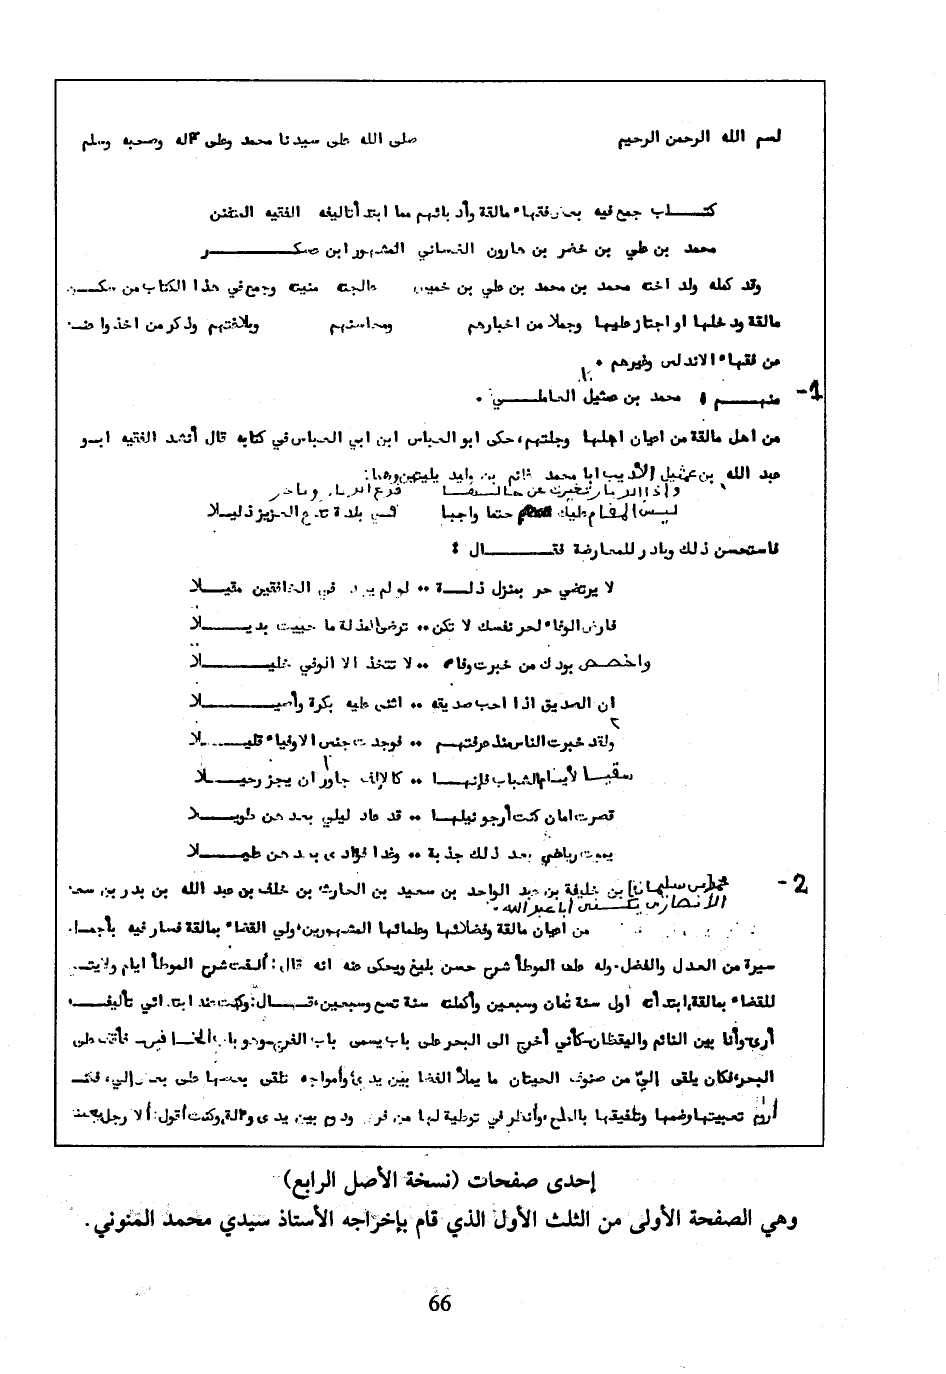 بسم الله الرحمن الرحيم صلى الله على سيدنا محمد وعلى آله وصحبه وسلم
كتـــاب جمع فيه بعض فقهاء مالقة وأدبائهم مما ابتدأ تأليفه الفقيه المتفنن
محمد بن علي بن خضر بن هارون الغساني المشهور ابن عسكـــــــر
وقد كمله ولد اخته محمد بن محمد بن علي بن خميس عالجته منيته وجمع في هذا الكتاب من سكـــن
مالقة ودخلها او اجتاز عليها وجملا من اخبارهم ومحاسنهم وبلاغتهم وذكر من اخذوا عنـه
من فقهاء الاندلس وغيرهم .
1- منهـــم : محمد بن عثيل العاملـــــي .
من أهل مالقة من اعيان اهلها وجلتهم، حكى ابو العباس ابن ابي العباس في كتابه قال أنشد الفقيه ابــو
عبد الله بن عثيل الأديب ابا محمد غانم بن وليد بليتين وهما:
وإذا الديار تغيرت عن حالـــهـــا فدع الديار وبادر
ليـس المقـام عليك حتما واجبا فـي بلدة تدع العزيز ذليـلا
فاستحسن ذلك وبادر للمعارضة فقـــــــال :
لا يرتضي حر بمنزل ذلــــة .. لو لم يجد في الخافقين مقيـــلا
فارض الوفاء لحر نفسك لا تكن .. ترضى المذلة ما حييت بديـــــلا
واخصـــص بودك من خبرت وفاءه .. لا تتخذ الا الوفي خليــــلا
ان الصديق اذا احب صديقه .. اثنى عليه بكرة وأصيـــــلا
ولقد خبرت الناس منذ عرفتهـــم .. فوجدت جنس الاوفياء قليــــلا
سقيــا لأيـام الشباب فإنهـــا .. كالإلف جاور ان يجز رحيـــلا
قصرت امان كنت أرجو نيلهـــا .. قد عاد ليلي بعد هن طويـــلا
رياضي بعد ذلك جذبة .. وغدا فؤادي بعد هن عليـــلا
2- محمد بن سليمان بن خليفة بن عبد الواحد بن سعيد بن الحارث بن خلف بن عبد الله بن بدر بن سعد
الأنصاري يكـــنى أبا عبد الله .
من اعيان مالقة وفضلائها وعلمائها المشهورين، ولي القضاء بمالقة فسار فيه بأجمـل
سيرة من العدل والفضل، وله على الموطأ شرح حسن بليغ ويحكى عنه انه قال: ألفت شرح الموطأ ايام ولايتـي
للقضاء بمالقة، ابتدأته اول سنة ثمان وسبعين وأكملته سنة تسع وسبعين، قـــال: وكنت عند ابتدائي تأليفـــه
أرى وأنا بين النائم واليقظان، كأني أخرج الى البحر على باب يسمى باب الفرج، وهو باب فأقف على
البحر، فكان يلقى إليّ من صنوف الحيتان ما يملأ الفضا بين يديّ وأمواجه تلقى بعضها على بعض إلي، فكنــت
أروم تعبيتها وضمها وتلفيقها بالملح، وأنظر في توطية لها من فرث ودم بين يدي وحالة، وكنت أقول: ألا رجل
إحدى صفحات (نسخة الأصل الرابع)
وهي الصفحة الأولى من الثلث الأول الذي قام بإخراجه الأستاذ سيدي محمد المنوني.
66